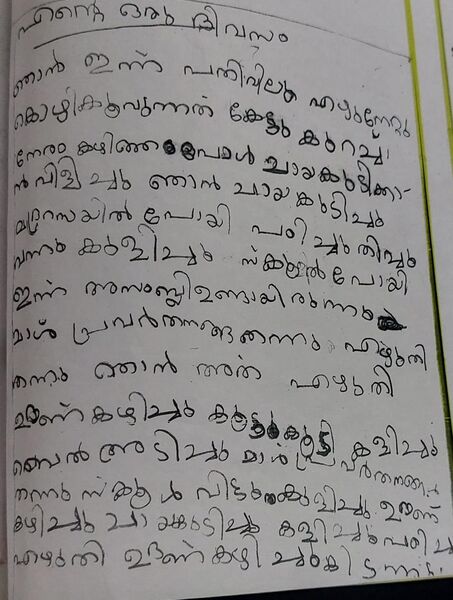 എന്റെ ഒരു ദിവസം
ഞാൻ ഇന്ന് പതിവിലും എഴുന്നേറ്റു
കൊഴികൂവുന്നത് കേട്ടു കുറച്ചു
നേരം കഴിഞ്ഞപ്പോൾ ചായകുടിക്കാ-
ൻവിളിച്ചു ഞാൻ ചായകുടിച്ചു
മദ്രറസയിൽ പോയി പഠിച്ചുതിച്ചു
വന്നു കുളിച്ചു സ്കൂളൽപോയി
ഇന്ന് അസംബ്ലിഉണ്ടായിരുന്നു
മാഷ് പ്രവർത്തനങ്ങതന്നു എഴുതി
തന്നു ഞാൻ അത് എഴുതി
ഊണ്കഴിച്ചു കൂട്ടുകൂടി കളിച്ചു
ബെൽ അടിച്ചു മാഷ്പ്രവർത്തനങ്ങൾ
തന്നു സ്കൂൾ വിട്ടുകുളിച്ചു ഊണ്
കഴിച്ചു ചായകുടിച്ചു കളിച്ചുപഠിച്ചു
എഴുതി ഊണ്കഴിച്ചുകിടന്നു